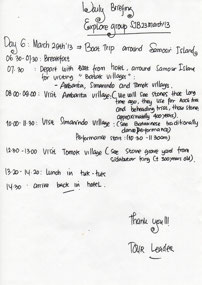 Daily Briefing
Explore group SJB23march'13
Day 6 : March 29th'13 → Boat Trip around Samosir Island
06.30-07.30 : Breakfast
07.30 : Depart with Boat from hotel, around Samosir Island
for visiting "Batak village" :
- Ambarita, Simanindo and Tomok village.
08.00-09.00 : Visit Ambarita village (We will see stones that long
time ago, they use for
and beheading trial, those stone
approximately 300 years)
10.00-11.30 : Visit Simanindo village : (See Bataknese traditionally
dance/performance)
Performance start : (10.30-11.30am)
12.30-13.00 : Visit Tomok village (See Stone grave yard from
Sidabutar King (± 500 years old).
13.20-14.20 : Lunch in tuk-tuk
14.30 : arrive back in hotel.
Thank you!!!
TOUR LEADER